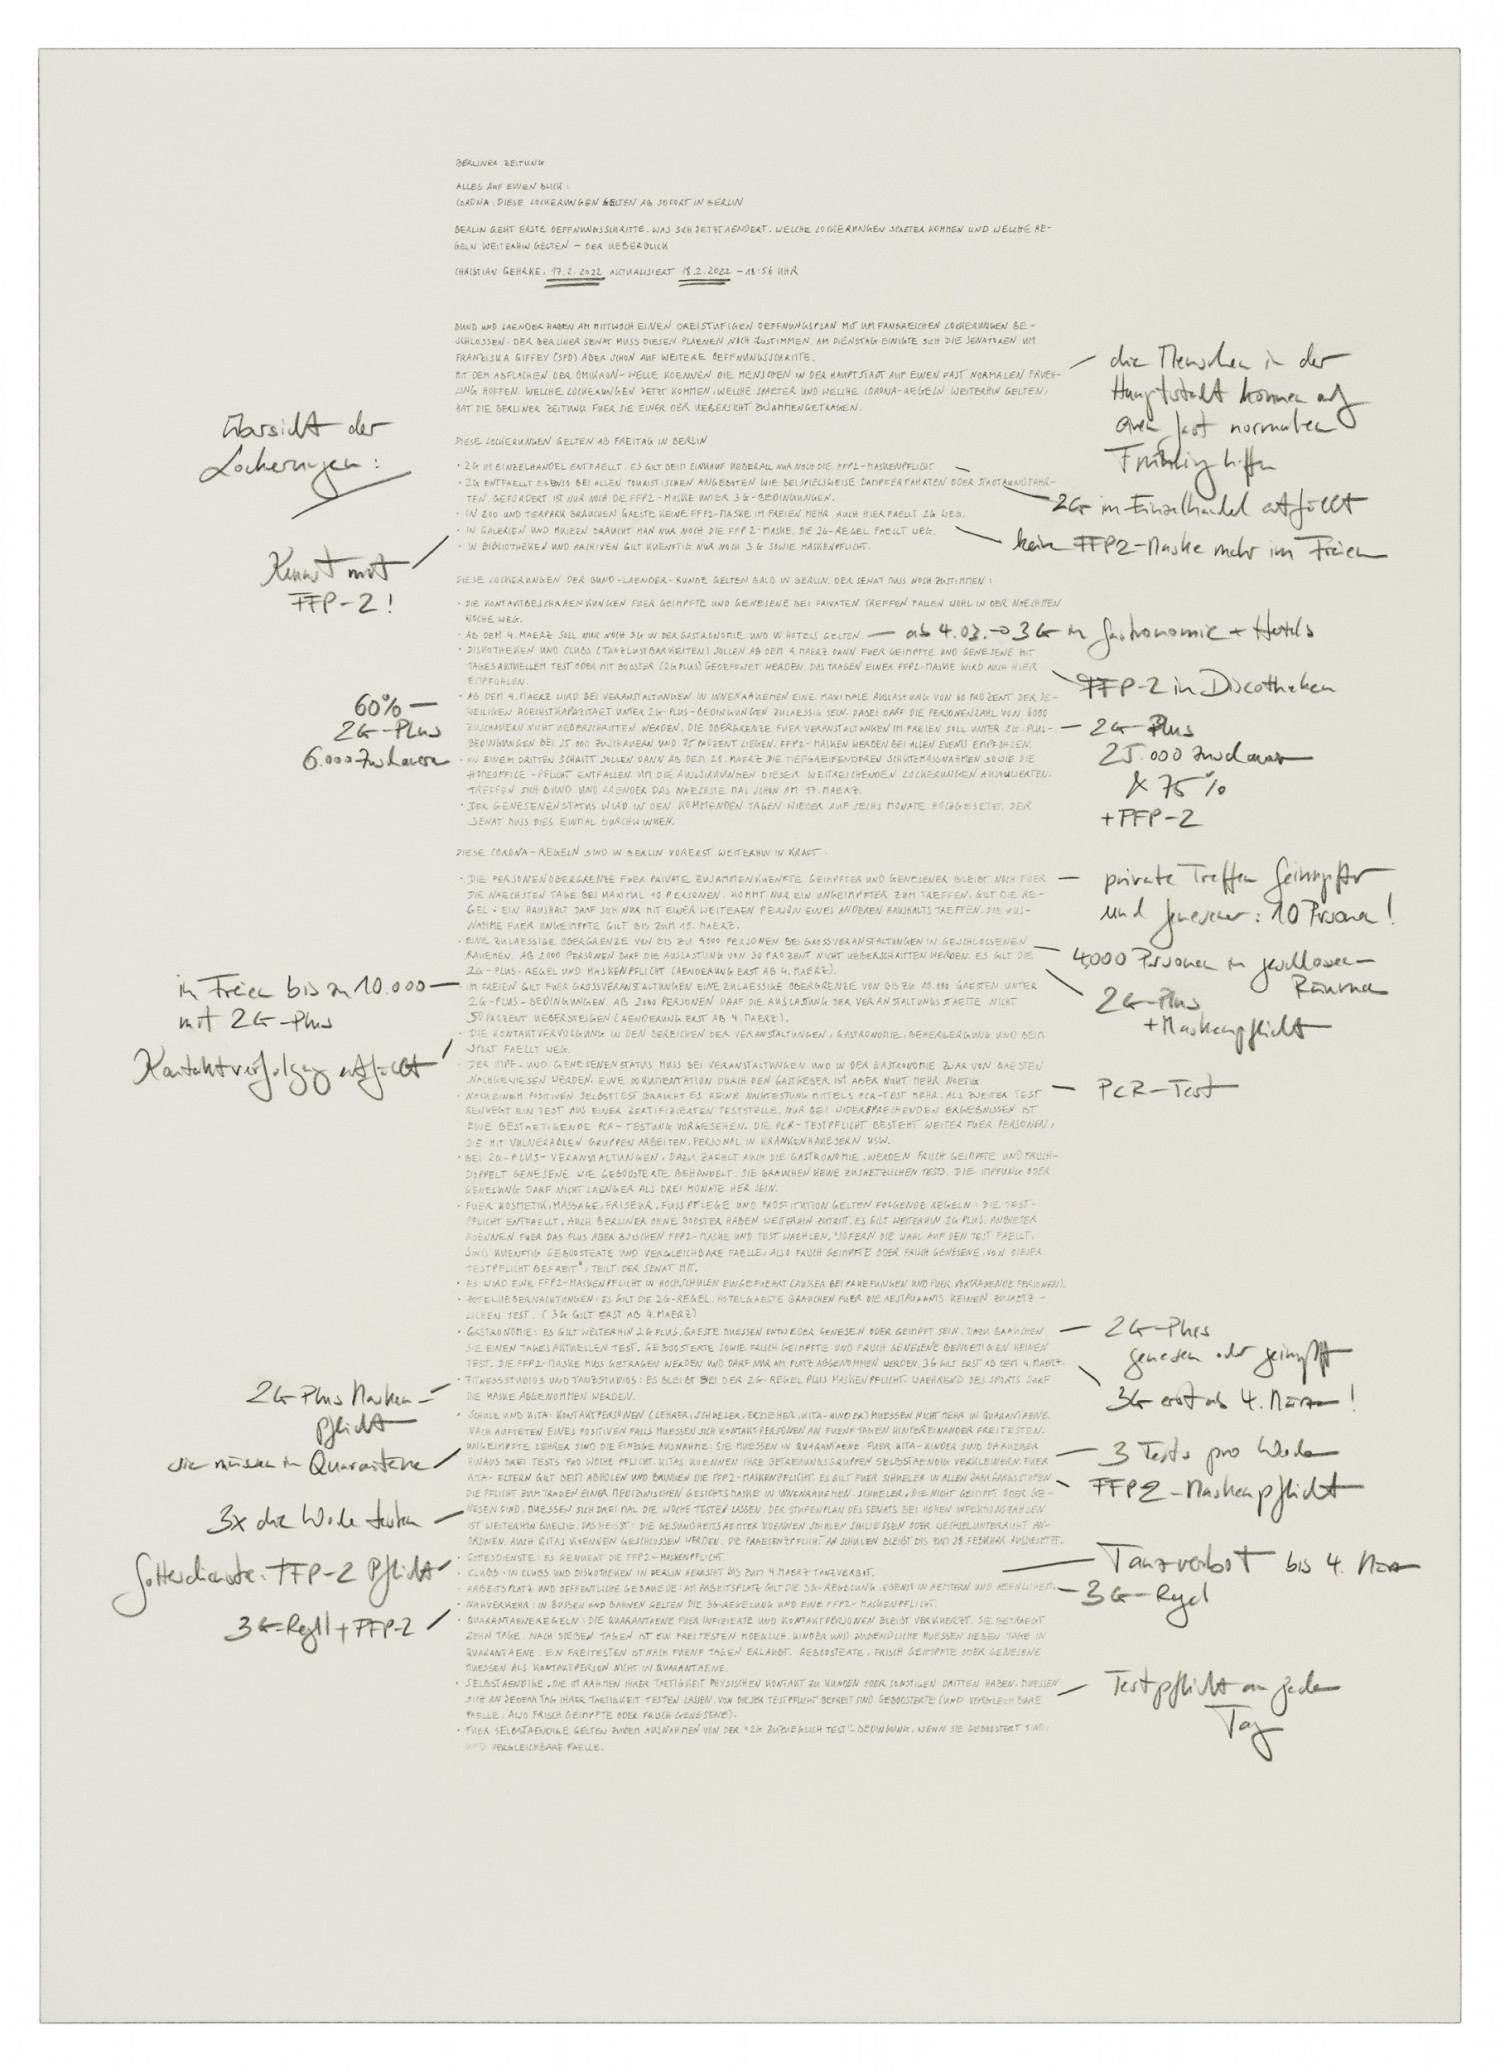 BERLINER ZEITUNG
ALLES AUF EINEN BLICK:
CORONA: DIESE LOCKERUNGEN GELTEN AB SOFORT IN BERLIN
BERLIN GEHT ERSTE OEFFNUNGSSCHRITTE. WAS SICH JETZT AENDERT, WELCHE LOCKERUNGEN SPAETER KOMMEN UND WELCHE RE-
GELN WEITERHIN GELTEN – DER UEBERBLICK
CHRISTIAN GEHRKE, 17.2.2022 AKTUALISIERT 18.2.2022 – 18:56 UHR
BUND UND LAENDER HABEN AM MITTWOCH EINEN DREISTUFIGEN OEFFNUNGSPLAN MIT UMFANGREICHEN LOCKERUNGEN BE-
SCHLOSSEN. DER BERLINER SENAT MUSS DIESEN PLAENEN NOCH ZUSTIMMEN. AM DIENSTAG EINIGTE SICH DIE SENATOREN UM
FRANZISKA GIFFEY (SPD) ABER SCHON AUF WEITERE OEFFNUNGSSCHRITTE.
MIT DEM ABFLACHEN DER OMIKRON-WELLE KOENNEN DIE MENSCHEN IN DER HAUPTSTADT AUF EINEN FAST NORMALEN FRUEH-
LING HOFFEN. WELCHE LOCKERUNGEN JETZT KOMMEN, WELCHE SPAETER UND WELCHE CORONA-REGELN WEITERHIN GELTEN,
HAT DIE BERLINER ZEITUNG FUER SIE EINER DER UEBERSICHT ZUSAMMENGETRAGEN.
die Menschen in der
Hauptstadt können auf
einen fast normalen
Frühling hoffen
Übersicht der
Lockerungen:
DIESE LOCKERUNGEN GELTEN AB FREITAG IN BERLIN
· 2G IM EINZELHANDEL ENTFAELLT. ES GILT BEIM EINKAUF UEBERALL NUR NOCH DIE FFP2-MASKENPFLICHT.
· 2G ENTFAELLT EBENSO BEI ALLEN TOURISTISCHEN ANGEBOTEN WIE BEISPIELSWEISE DAMPFERFAHRTEN ODER STADTRUNDFAHR-
TEN. GEFORDERT IST NUR NOCH DIE FFP2-MASKE UNTER 3G-BEDINGUNGEN.
· IN ZOO UND TIERPARK BRAUCHEN GAESTE KEINE FFP2-MASKE IM FREIEN MEHR. AUCH HIER FAELLT 2G WEG.
· IN GALERIEN UND MUSEEN BRAUCHT MAN NUR NOCH DIE FFP2-MASKE. DIE 2G-REGEL FAELLT WEG.
· IN BIBLIOTHEKEN UND ARCHIVEN GILT KUENFTIG NUR NOCH 3G SOWIE MASKENPFLICHT.
2G im Einzelhandel entfällt
keine FFP2-Maske mehr im Freien
Kunst mit
FFP-2!
DIESE LOCKERUNGEN DER BUND-LAENDER-RUNDE GELTEN BALD IN BERLIN. DER SENAT MUSS NOCH ZUSTIMMEN:
· DIE KONTAKTBESCHRAENKUNGEN FUER GEIMPFTE UND GENESENE BEI PRIVATEN TREFFEN FALLEN WOHL IN DER NAECHSTEN
WOCHE WEG.
· AB DEM 4. MAERZ SOLL NUR NOCH 3G IN DER GASTRONOMIE UND IN HOTELS GELTEN.
ab 4.03. → 3G in Gastronomie + Hotels
· DISKOTHEKEN UND CLUBS (TANZLUSTBARKEITEN) SOLLEN AB DEM 4. MAERZ DANN FUER GEIMPFTE UND GENESENE MIT
TAGESAKTUELLEM TEST ODER MIT BOOSTER (2G PLUS) GEOEFFNET WERDEN. DAS TRAGEN EINER FFP2-MASKE WIRD AUCH HIER
EMPFOHLEN.
FFP-2 in Discotheken
· AB DEM 4. MAERZ WIRD BEI VERANSTALTUNGEN IN INNENRAEUMEN EINE MAXIMALE AUSLASTUNG VON 60 PROZENT DER JE-
WEILIGEN HOECHSTKAPAZITAET UNTER 2G-PLUS-BEDINGUNGEN ZULAESSIG SEIN. DABEI DARF DIE PERSONENZAHL VON 6000
ZUSCHAUERN NICHT UEBERSCHRITTEN WERDEN. DIE OBERGRENZE FUER VERANSTALTUNGEN IM FREIEN SOLL UNTER 2G-PLUS-
BEDINGUNGEN BEI 25.000 ZUSCHAUERN UND 75 PROZENT LIEGEN. FFP2-MASKEN WERDEN BEI ALLEN EVENTS EMPFOHLEN.
60% –
2G-Plus
6.000 Zuschauer
2G-Plus
25.000 Zuschauer
& 75%
+ FFP-2
· IN EINEM DRITTEN SCHRITT SOLLEN DANN AB DEM 20. MAERZ DIE TIEFGREIFENDEREN SCHUTZMASSNAHMEN SOWIE DIE
HOMEOFFICE-PFLICHT ENTFALLEN. UM DIE AUSWIRKUNGEN DIESER WEITREICHENDEN LOCKERUNGEN
TREFFEN SICH BUND UND LAENDER DAS NAECHSTE MAL SCHON AM 17. MAERZ.
· DER GENESENENSTATUS WIRD IN DEN KOMMENDEN TAGEN WIEDER AUF SECHS MONATE HOCHGESETZT. DER
SENAT MUSS DIES EINMAL DURCHWINKEN.
DIESE CORONA-REGELN SIND IN BERLIN VORERST WEITERHIN IN KRAFT:
· DIE PERSONENOBERGRENZE FUER PRIVATE ZUSAMMENKUENFTE GEIMPFTER UND GENESENER BLEIBT NOCH FUER
DIE NAECHSTEN TAGE BEI MAXIMAL 10 PERSONEN. KOMMT NUR EIN UNGEIMPFTER ZUM TREFFEN, GILT DIE RE-
GEL: EIN HAUSHALT DARF SICH NUR MIT EINER WEITEREN PERSON EINES ANDEREN HAUSHALTS TREFFEN. DIE AUS-
NAHME FUER UNGEIMPFTE GILT BIS ZUM 19. MAERZ.
private Treffen Geimpfter
und Genesener: 10 Personen!
· EINE ZULAESSIGE OBERGRENZE VON BIS ZU 4000 PERSONEN BEI GROSSVERANSTALTUNGEN IN GESCHLOSSENEN
RAEUMEN. AB 2000 PERSONEN DARF DIE AUSLASTUNG VON 30 PROZENT NICHT UEBERSCHRITTEN WERDEN. ES GILT DIE
2G-PLUS-REGEL UND MASKENPFLICHT (AENDERUNG ERST AB 4. MAERZ).
4000 Personen in geschlossenen
Räumen
2G-Plus
+Maskenpflicht
· IM FREIEN GILT FUER GROSSVERANSTALTUNGEN EINE ZULAESSIGE OBERGRENZE VON BIS ZU 10.000 GAESTEN UNTER
2G-PLUS-BEDINGUNGEN. AB 2000 PERSONEN DARF DIE AUSLASTUNG DER VERANSTALTUNGSSTAETTE NICHT
50 PROZENT UEBERSTEIGEN (AENDERUNG ERST AB 4. MAERZ).
im Freien bis zu 10.000
mit 2G-Plus
· DIE KONTAKTVERFOLGUNG IN DEN BEREICHEN DER VERANSTALTUNGEN, GASTRONOMIE, BEHERBERGUNG UND BEIM
SPORT FAELLT WEG.
Kontaktverfolgung entfällt
· DER IMPF- UND GENESENENSTATUS MUSS BEI VERANSTALTUNGEN UND IN DER GASTRONOMIE ZWAR VON GAESTEN
NACHGEWIESEN WERDEN. EINE DOKUMENTATION DURCH DEN GASTGEBER IST ABER NICHT MEHR NOETIG.
· NACH EINEM POSITIVEN SELBSTTEST BRAUCHT ES KEINE NACHTESTUNG MITTELS PCR-TEST MEHR. ALS ZWEITER TEST
REICHT EIN TEST AUS EINER ZERTIFIZIERTEN TESTSTELLE. NUR BEI WIDERSPRECHENDEN ERGEBNISSEN IST
EINE BESTAETIGENDE PCR-TESTUNG VORGESEHEN. DIE PCR-TESTPFLICHT BESTEHT WEITER FUER PERSONEN,
DIE MIT VULNERABLEN GRUPPEN ARBEITEN, PERSONAL IN KRANKENHAEUSERN USW.
PCR-Test
· BEI 2G-PLUS-VERANSTALTUNGEN, DAZU ZAEHLT AUCH DIE GASTRONOMIE, WERDEN FRISCH GEIMPFTE UND FRISCH-
DOPPELT GENESENE WIE GEBOOSTERTE BEHANDELT. SIE BRAUCHEN KEINE ZUSAETZLICHEN TESTS. DIE IMPFUNG ODER
GENESUNG DARF NICHT LAENGER ALS DREI MONATE HER SEIN.
· FUER KOSMETIK, MASSAGE, FRISEUR, FUSSPFLEGE UND PROSTITUTION GELTEN FOLGENDE REGELN: DIE TEST-
PFLICHT ENTFAELLT, AUCH BERLINER OHNE BOOSTER HABEN WEITERHIN ZUTRITT. ES GILT WEITERHIN 2G PLUS. ANBIETER
KOENNEN FUER DAS PLUS ABER ZWISCHEN FFP2-MASKE UND TEST WAEHLEN. "SOFERN DIE WAHL AUF DEN TEST FAELLT,
SIND KUENFTIG GEBOOSTERTE UND VERGLEICHBARE FAELLE, ALSO FRISCH GEIMPFTE ODER FRISCH GENESENE, VON DIESER
TESTPFLICHT BEFREIT", TEILT DER SENAT MIT.
· ES WIRD EINE FFP2-MASKENPFLICHT IN HOCHSCHULEN EINGEFUEHRT (AUSSER BEI PRUEFUNGEN UND FUER VORTRAGENDE PERSONEN).
· HOTELUEBERNACHTUNGEN: ES GILT DIE 2G-REGEL. HOTELGAESTE BRAUCHEN FUER DIE RESTAURANTS KEINEN ZUSAETZ-
LICHEN TEST. (3G GILT ERST AB 4. MAERZ)
· GASTRONOMIE: ES GILT WEITERHIN 2G PLUS. GAESTE MUESSEN ENTWEDER GENESEN ODER GEIMPFT SEIN. DAZU BRAUCHEN
SIE EINEN TAGESAKTUELLEN TEST. GEBOOSTERTE SOWIE FRISCH GEIMPFTE UND FRISCH GENESENE BENOETIGEN KEINEN
TEST. DIE FFP2-MASKE MUSS GETRAGEN WERDEN UND DARF NUR AM PLATZ ABGENOMMEN WERDEN. 3G GILT ERST AB DEM 4. MAERZ.
2G-Plus
genesen oder geimpft
3G erst ab 4. März!
· FITNESSSTUDIOS UND TANZSTUDIOS: ES BLEIBT BEI DER 2G-REGEL PLUS MASKENPFLICHT. WAEHREND DES SPORTS DARF
DIE MASKE ABGENOMMEN WERDEN.
2G-Plus Masken-
pflicht
· SCHULE UND KITA: KONTAKTPERSONEN (LEHRER, SCHUELER, ERZIEHER, KITA-KINDER) MUESSEN NICHT MEHR IN QUARANTAENE.
NACH AUFTRETEN EINES POSITIVEN FALLS MUESSEN SICH KONTAKTPERSONEN AN FUENF TAGEN HINTEREINANDER FREITESTEN.
UNGEIMPFTE LEHRER SIND DIE EINZIGE AUSNAHME: SIE MUESSEN IN QUARANTAENE. FUER KITA-KINDER SIND DARUEBER
HINAUS DREI TESTS PRO WOCHE PFLICHT. KITAS KOENNEN IHRE BETREUUNGSGRUPPEN SELBSTAENDIG VERKLEINERN. FUER
KITA-ELTERN GILT BEIM ABHOLEN UND BRINGEN DIE FFP2-MASKENPFLICHT. ES GILT FUER SCHUELER IN ALLEN JAHRGANGSSTUFEN
DIE PFLICHT ZUM TRAGEN EINER MEDIZINISCHEN GESICHTSMASKE IN INNENRAEUMEN. SCHUELER, DIE NICHT GEIMPFT ODER GE-
NESEN SIND, MUESSEN SICH DREI MAL DIE WOCHE TESTEN LASSEN. DER STUFENPLAN DES SENATS BEI HOHEN INFEKTIONSZAHLEN
IST WEITERHIN GUELTIG. DAS HEISST: DIE GESUNDHEITSAEMTER KOENNEN SCHULEN SCHLIESSEN ODER WECHSELUNTERRICHT AN-
ORDNEN. AUCH KITAS KOENNEN GESCHLOSSEN WERDEN. DIE PRAESENZPFLICHT AN SCHULEN BLEIBT BIS ZUM 28. FEBRUAR AUSGESETZT.
sie müssen in Quarantäne
3 Tests pro Woche
FFP2-Maskenpflicht
3x die Woche testen
· GOTTESDIENSTE: ES GENUEGT DIE FFP2-MASKENPFLICHT.
Gottesdienste: FFP-2 Pflicht
· CLUBS: IN CLUBS UND DISKOTHEKEN IN BERLIN HERRSCHT BIS ZUM 4. MAERZ TANZVERBOT.
Tanzverbot bis 4. März
· ARBEITSPLATZ UND OEFFENTLICHE GEBAEUDE: AM ARBEITSPLATZ GILT DIE 3G-REGELUNG, EBENSO IN AEMTERN UND AEHNLICHEM.
3G-Regel
· NAHVERKEHR: IN BUSSEN UND BAHNEN GELTEN DIE 3G-REGELUNG UND EINE FFP2-MASKENPFLICHT.
3G-Regel + FFP-2
· QUARANTAENEREGELN: DIE QUARANTAENE FUER INFIZIERTE UND KONTAKTPERSONEN BLEIBT VERKUERZT. SIE BETRAEGT
ZEHN TAGE. NACH SIEBEN TAGEN IST EIN FREITESTEN MOEGLICH. KINDER UND JUGENDLICHE MUESSEN SIEBEN TAGE IN
QUARANTAENE. EIN FREITESTEN IST NACH FUENF TAGEN ERLAUBT. GEBOOSTERTE, FRISCH GEIMPFTE ODER GENESENE
MUESSEN ALS KONTAKTPERSON NICHT IN QUARANTAENE.
· SELBSTAENDIGE, DIE IM RAHMEN IHRER TAETIGKEIT PHYSISCHEN KONTAKT ZU KUNDEN ODER SONSTIGEN DRITTEN HABEN, MUESSEN
SICH AN JEDEM TAG IHRER TAETIGKEIT TESTEN LASSEN. VON DIESER TESTPFLICHT BEFREIT SIND GEBOOSTERTE (UND VERGLEICHBARE
FAELLE, ALSO FRISCH GEIMPFTE ODER FRISCH GENESENE).
Testpflicht an jedem
Tag
· FUER SELBSTAENDIGE GELTEN ZUDEM AUSNAHMEN VON DER "2G ZUZUEGLICH TEST"-BEDINGUNG, WENN SIE GEBOOSTERT SIND
UND VERGLEICHBARE FAELLE.